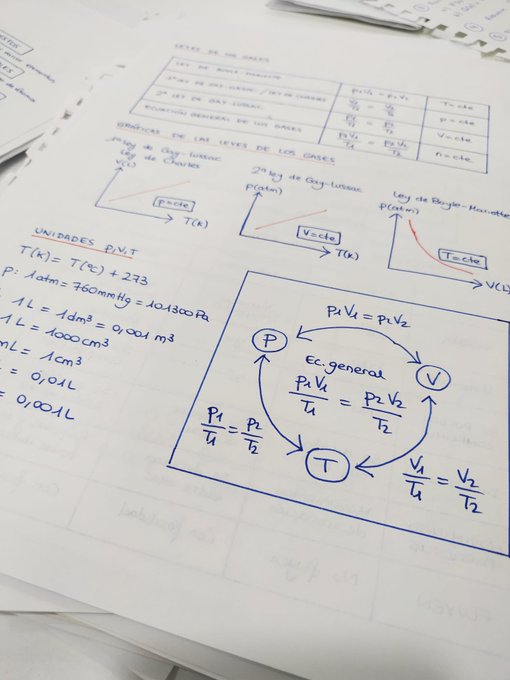 LEYES DE LOS GASES
LEY DE BOYLE-MARIOTTE p1V1 = p2V2 T=cte
1ª LEY DE GAY-LUSSAC / LEY DE CHARLES V1/T1 = V2/T2 p=cte
2ª LEY DE GAY-LUSSAC p1/T1 = p2/T2 V=cte
ECUACIÓN GENERAL DE LOS GASES p1V1/T1 = p2V2/T2 n=cte
GRÁFICAS DE LAS LEYES DE LOS GASES
1ª ley de Gay-Lussac
Ley de Charles
V(L)
p=cte
T(K)
2ª ley de Gay-Lussac
P(atm)
V=cte
T(K)
Ley de Boyle-Mariotte
P(atm)
T=cte
V(L)
UNIDADES P,V,T
T(K) = T(ºC) + 273
P: 1atm = 760mmHg = 101300Pa
1L = 1dm³ = 0,001 m³
1L = 1000cm³
mL = 1cm³
= 0,01L
= 0,001L
p1V1 = p2V2
P
V
Ec. general
p1V1/T1 = p2V2/T2
p1/T1 = p2/T2
T
V1/T1 = V2/T2